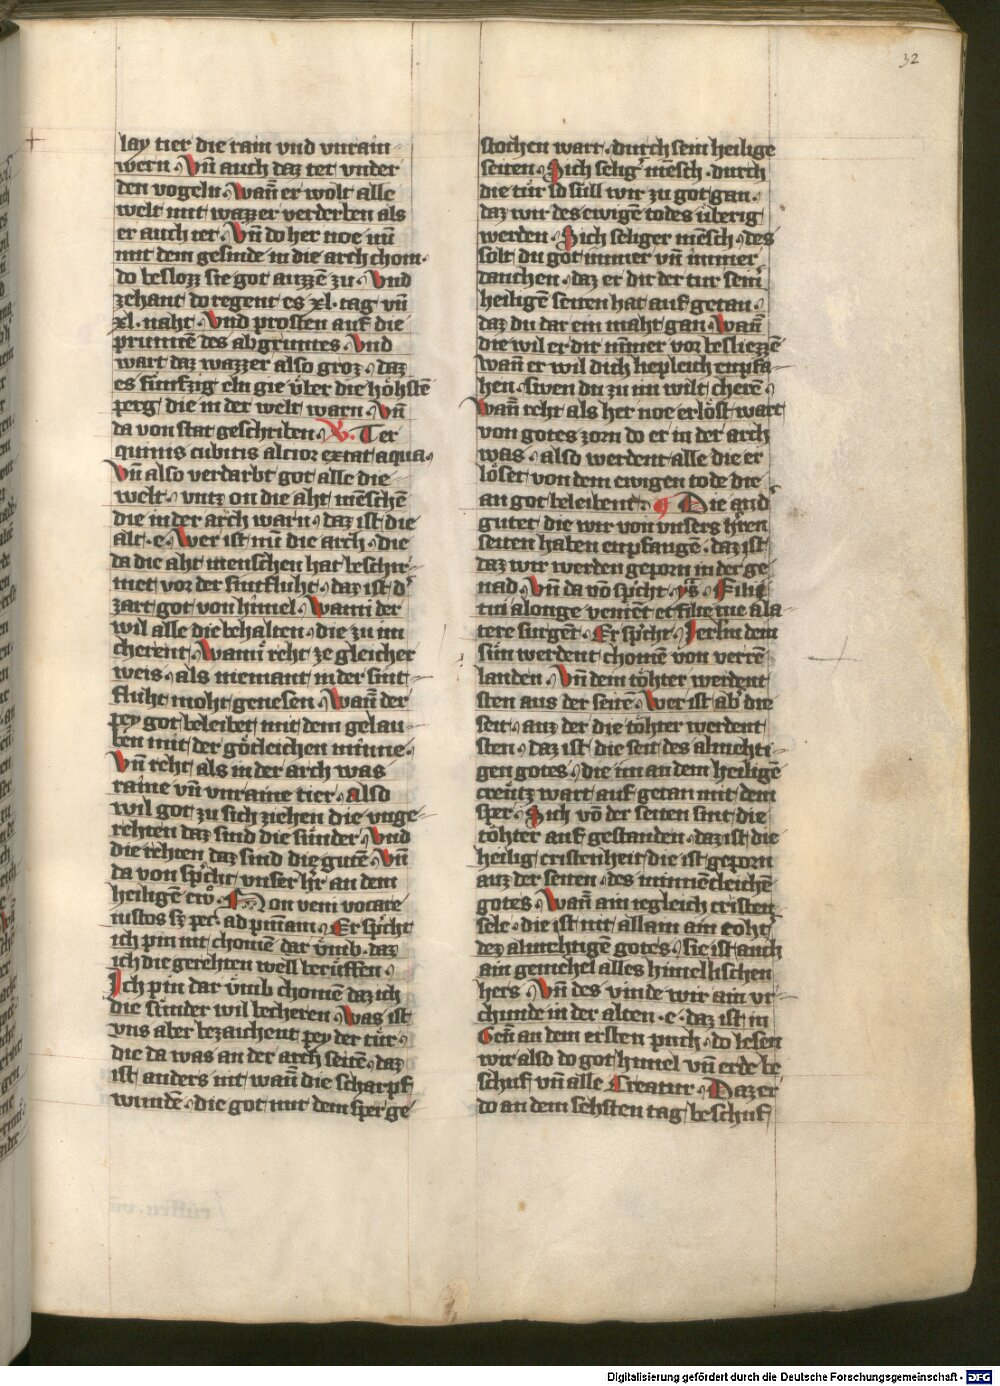 32
lay tier die rain vnd vnrain
wern. Vn̄ auch daz tet vnder
den vogeln. Wañ er wolt alle
welt mit wazzer verderben als
er auch tet. Vn̄ do her noe nū
mit dem gesinde in die arch chom.
do beslozz sie got auzzē zu. Vnd
zehant do regent es xl. tag vn̄
xl. naht. Vnd prosten auf die
prunnē des abgruntes. Vnd
wart daz wazzer also groz. daz
es fünfzig eln gie v̈ber die höhstē
perg die in der welt warn. Vn̄
da von stat geschriben. Ter
quinis cubitis altior extat aqua.
Vn̄ also verdarbt got alle die
welt. vntz on die aht mēschē
die in der arch warn. daz ist die
alt. e. Wer ist nū die arch. die
da die aht menschen hat beschir
met vor der sintfluht. daz ist d'
zart got von himel. Wann der
wil alle die behalten. die zu im
cherent. Wann reht ze gleicher
weis. als niemant in der sint
fluht moht genesen. Wañ der
pey got beleibet mit dem gelau
ben mit der götleichen minne.
Vn̄ reht als in der arch was
raine vn̄ vnraine tier. also
wil got zu sich ziehen die vnge
rehten daz sind die sünder. Vnd
die rehten daz sind die gutē. Vn̄
da von sp'cht vnser h'r an dem
heiligē ew̄. Non veni vocare
iustos sz pec̄ ad pn̄iam. Er sp'cht
ich pin nit chomē dar v̈mb. daz
ich die gerehten well berüffen.
Ich pin dar v̈mb chomē daz ich
die sünder wil becheren. Was ist
vns aber bezaichent pey der tür.
die da was an der arch seitē. daz
ist anders nit wañ die scharpf
wundē. die got mit dem sper ge
stochen wart. durch sein heilige
seiten. Sich selig' mēsch. durch
die tür so süll wir zu got gan.
daz wir des ewigē todes überig
werden. Sich seliger mēsch. des
solt du got immer vn̄ immer
danchen. daz er dir der tur seinr
heiligē seiten hat auf getan.
daz du dar ein maht gan. Wañ
die wil er dir nīmer vor besliezzē
wañ er wil dich liepleich enpfa
hen. swen du zu im wilt cherē.
Wañ reht als her noe erlöst wart
von gotes zorn do er in der arch
was. also werdent alle die er
löset von dem ewigen tode die
an got beleibent. Die and'
gutet die wir von vnsers h'ren
seiten haben enpfangē. daz ist
daz wir werden geporn in der ge
nad. Vn̄ da vō sp'icht. ys̄. Filii
tui alonge venient et filie tue a la
tere surgēt. Er sp'cht. Jerl'm dein
sün werdent chomē von verrē
landen. Vn̄ dein töhter werdent
sten aus der seitē. Wer ist ab' die
seit. auz der die töhter werdent
sten. daz ist die seit des almehti
gen gotes. die im an dem heiligē
creütz wart auf getan mit dem
sper. Sich vō der seiten sint die
töhter auf gestanden. daz ist die
heilig cristenheit die ist geporn
auz der seiten. des minnēcleichē
gotes. Wañ ain iegleich cristen
sele. die ist nit allain ain toht'
dez almehtigē gotes. sie ist auch
ain gemehel alles himelischen
hers. Vn̄ des vinde wir ain vr
chunde in der alten. e. daz ist in
Gen̄ an dem ersten puch. do lesen
wir also do got himel vn̄ erde be
schuf vn̄ alle Creatur. Daz er
do an dem sehsten tag beschuf
Digitalisierung gefördert durch die Deutsche Forschungsgemeinschaft - DFG